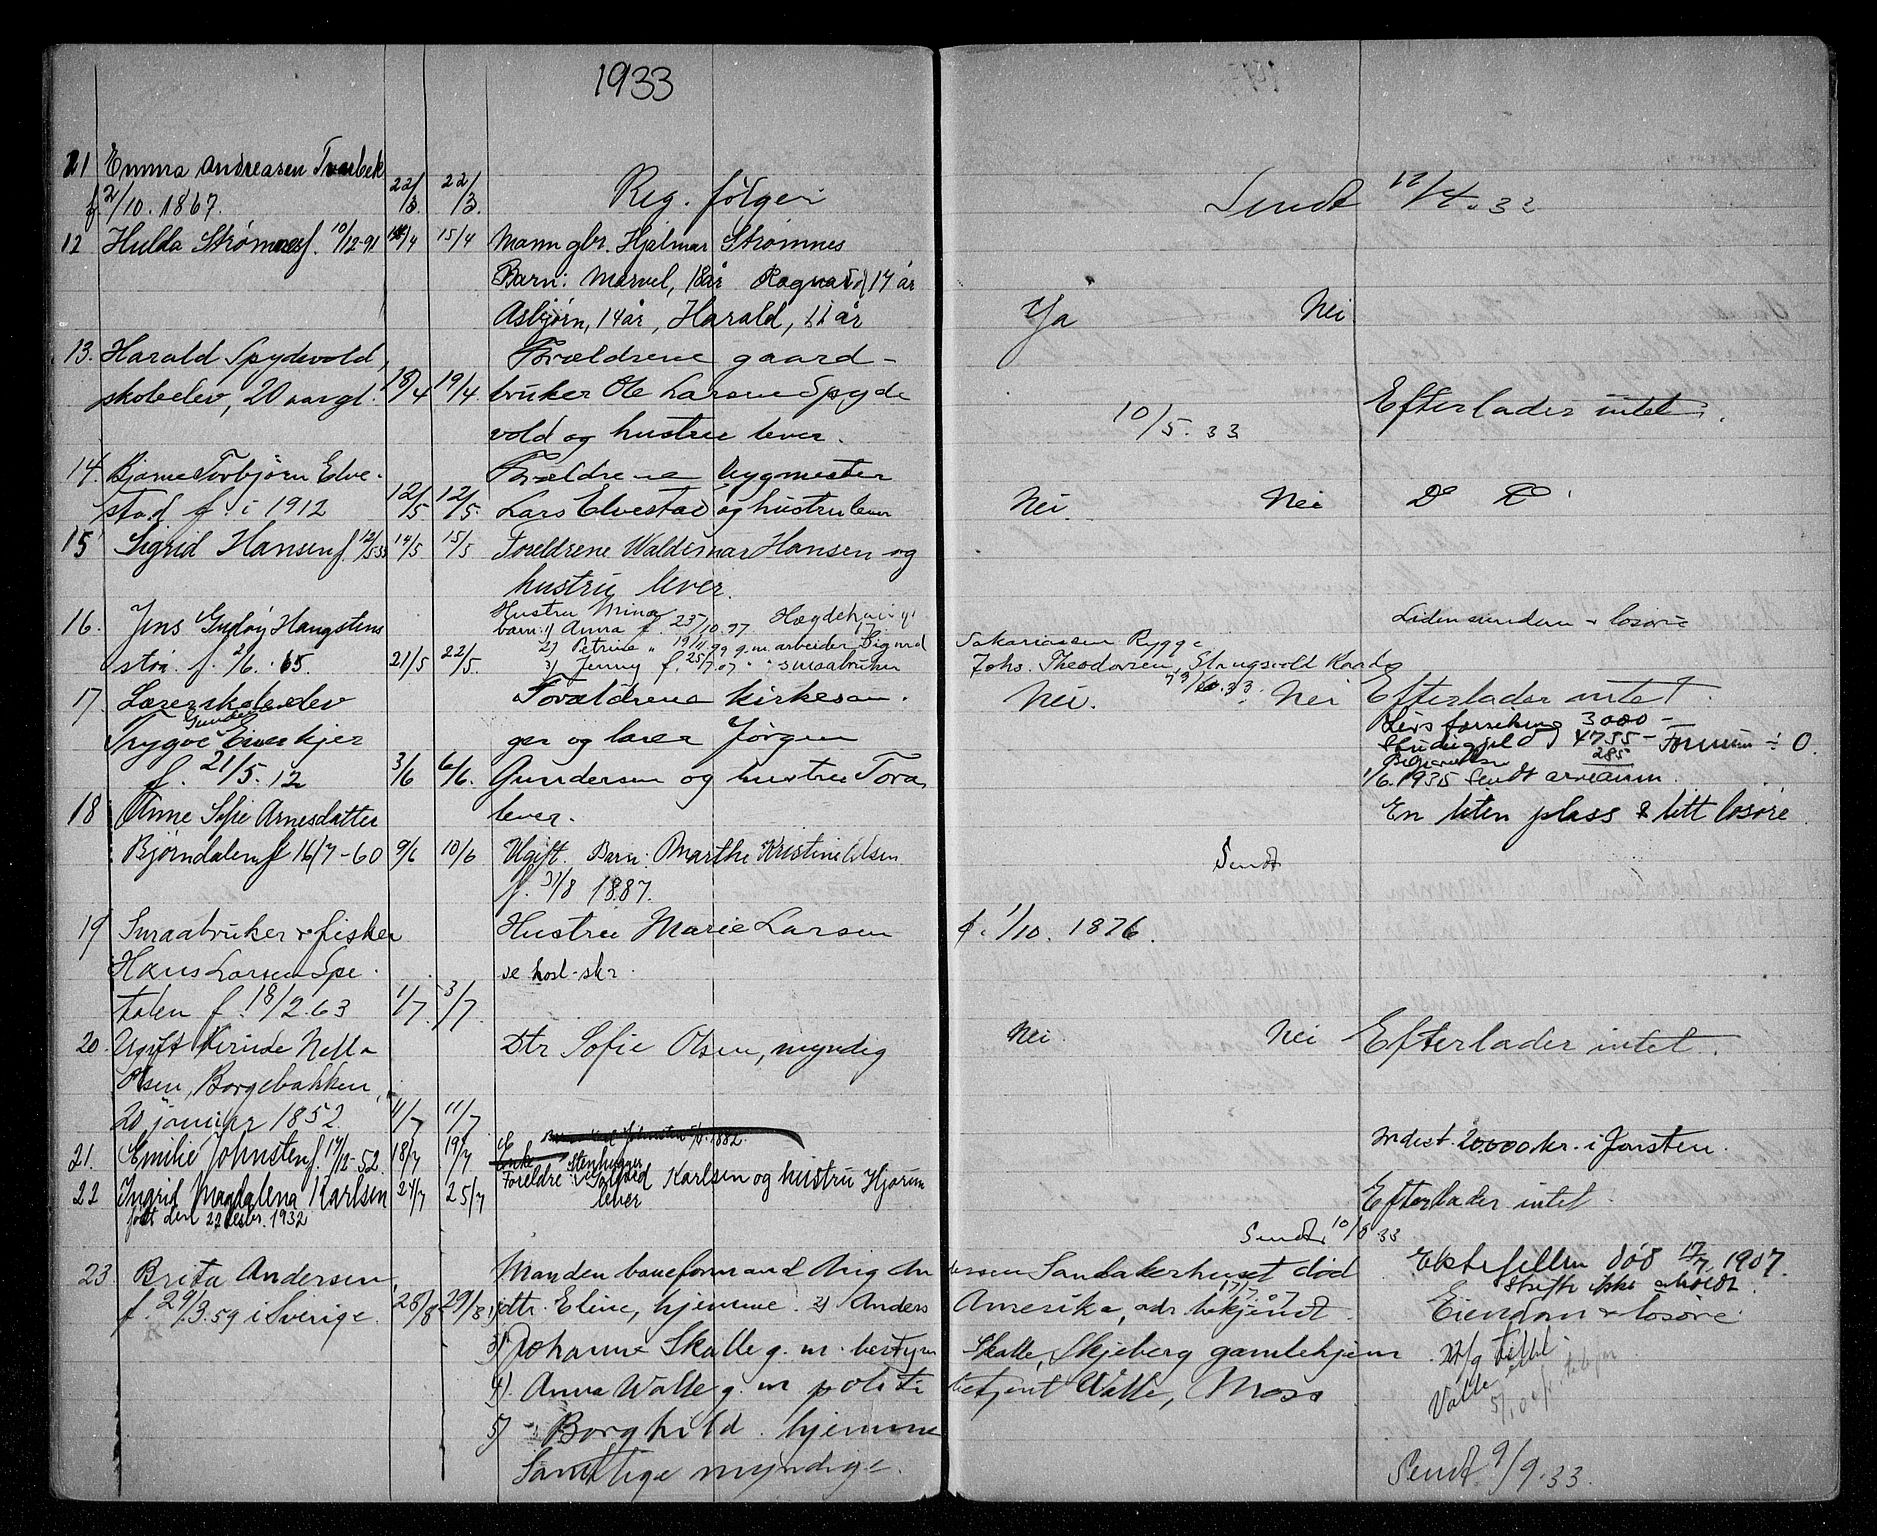 1933
21 Emma Andreasen Tvarbek
f 2/10. 1867. 22/3. 22/3. Reg. følger Sendt 12/4.33
12 Hulda Strømnes f. 10/12-91 14/4 15/4 Mann gbr. Hjalmar Strømnes
Barn: Marvel, 18 år Ragnar 17 år
Asbjørn, 14 år, Harald, 11 år Ja Nei
13. Harald Spydevold, Forældrene gaard-
skoleelev, 20 aar gl. 18/4 19/4. bruker Ole Larsen Spyde Efterlader intet.
vold og hustru lever. 10/5.33
14. Bjarne Torbjørn Elve- Forældrene bygmester
stad f. i 1912 12/5 12/5. Lars Elvestad og hustru lever Nei. Nei Do Do
15 Sigrid Hansen f. 12/5 33 14/5 15/5 Foreldrene Waldemar Hansen og
hustru lever.
16. Jens Hustru Mina Liden eiendom & løsøre
barn: 1) Anna f. 23/10.97
2) Petrine " 19/11.99 g.m. arbeider Sigurd Sakariassen Rygge
f. 2/6. 65. 21/5 22/5. 3) Jenny f. 25/7.07 " " smaabruker Johs. Theodorsen,
17. Lærerskoleelev Forældrene kirkesan- Nei. Nei Efterlader intet
Gunder Livsforsikring 3000 -
Trygve Einerkjer ger og lærer Jørgen Studiegjeld 4755 - Formue ÷ 0
285
f. 21/5. 12 3/6 6/6. Gundersen og hustru Tora 1/6.1935 Sendt
18 Anne Sofie Arnesdatter lever. En liten plass & litt løsøre
Bjørndalen f 16/7-60 9/6 10/6 Ugift. Barn: Marthe Kristine Olsen Sendt
f. 31/8 1887.
19 Smaabruker & fisker Hustru Marie Larsen f. 1/10. 1876.
Hans Larsen Spe-
talen f. 18/2.63 1/7. 3/7.
20. Ugift Kvinde Nella Dtr Sofie Olsen, myndig Nei. Nei Efterlader intet.
Olsen, Borgebakken,
20 januar 1852. 11/7 11/7
21. Emilie Johnsten f. 17/12-52 18/7 19/7 Enke Indest. 20000 kr. i Jorsten.
22 Ingrid Magdalena Karlsen 24/7 25/7 Foreldre: Stenhugger Karlsen og hustru Hjørun Efterlader intet
født den 22 desbr. 1932 lever
Sendt 10/8 33
23. Brita Andersen, Manden baneformand Andersen Sandakerhuset død 17/7.07 Ektefellen død 17/7. 1907.
Skifte ikke avholdt.
f. 29/3.59 i Sverige. 28/8 29/8 1) dtr. Eline, hjemme. 2) Anders Amerika, adr. bekjendt. Eiendom & løsøre
3) Johanne Skalle g.m. bestyrer Skalle, Skjeberg gamlehjem
4). Anna Walle g. m. politibetjent Walle, Moss
5) " Borghild. hjemme
Samtlige myndige.
Sendt 9/9.33.